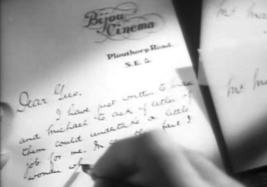 Bijou
Cinema
Plumthorp Road.
S.E.5.
Dear Gus.
I have just written to
and Michael to ask if either of
them could undertake a little
job for me. In fact I
women
Mr
Mr